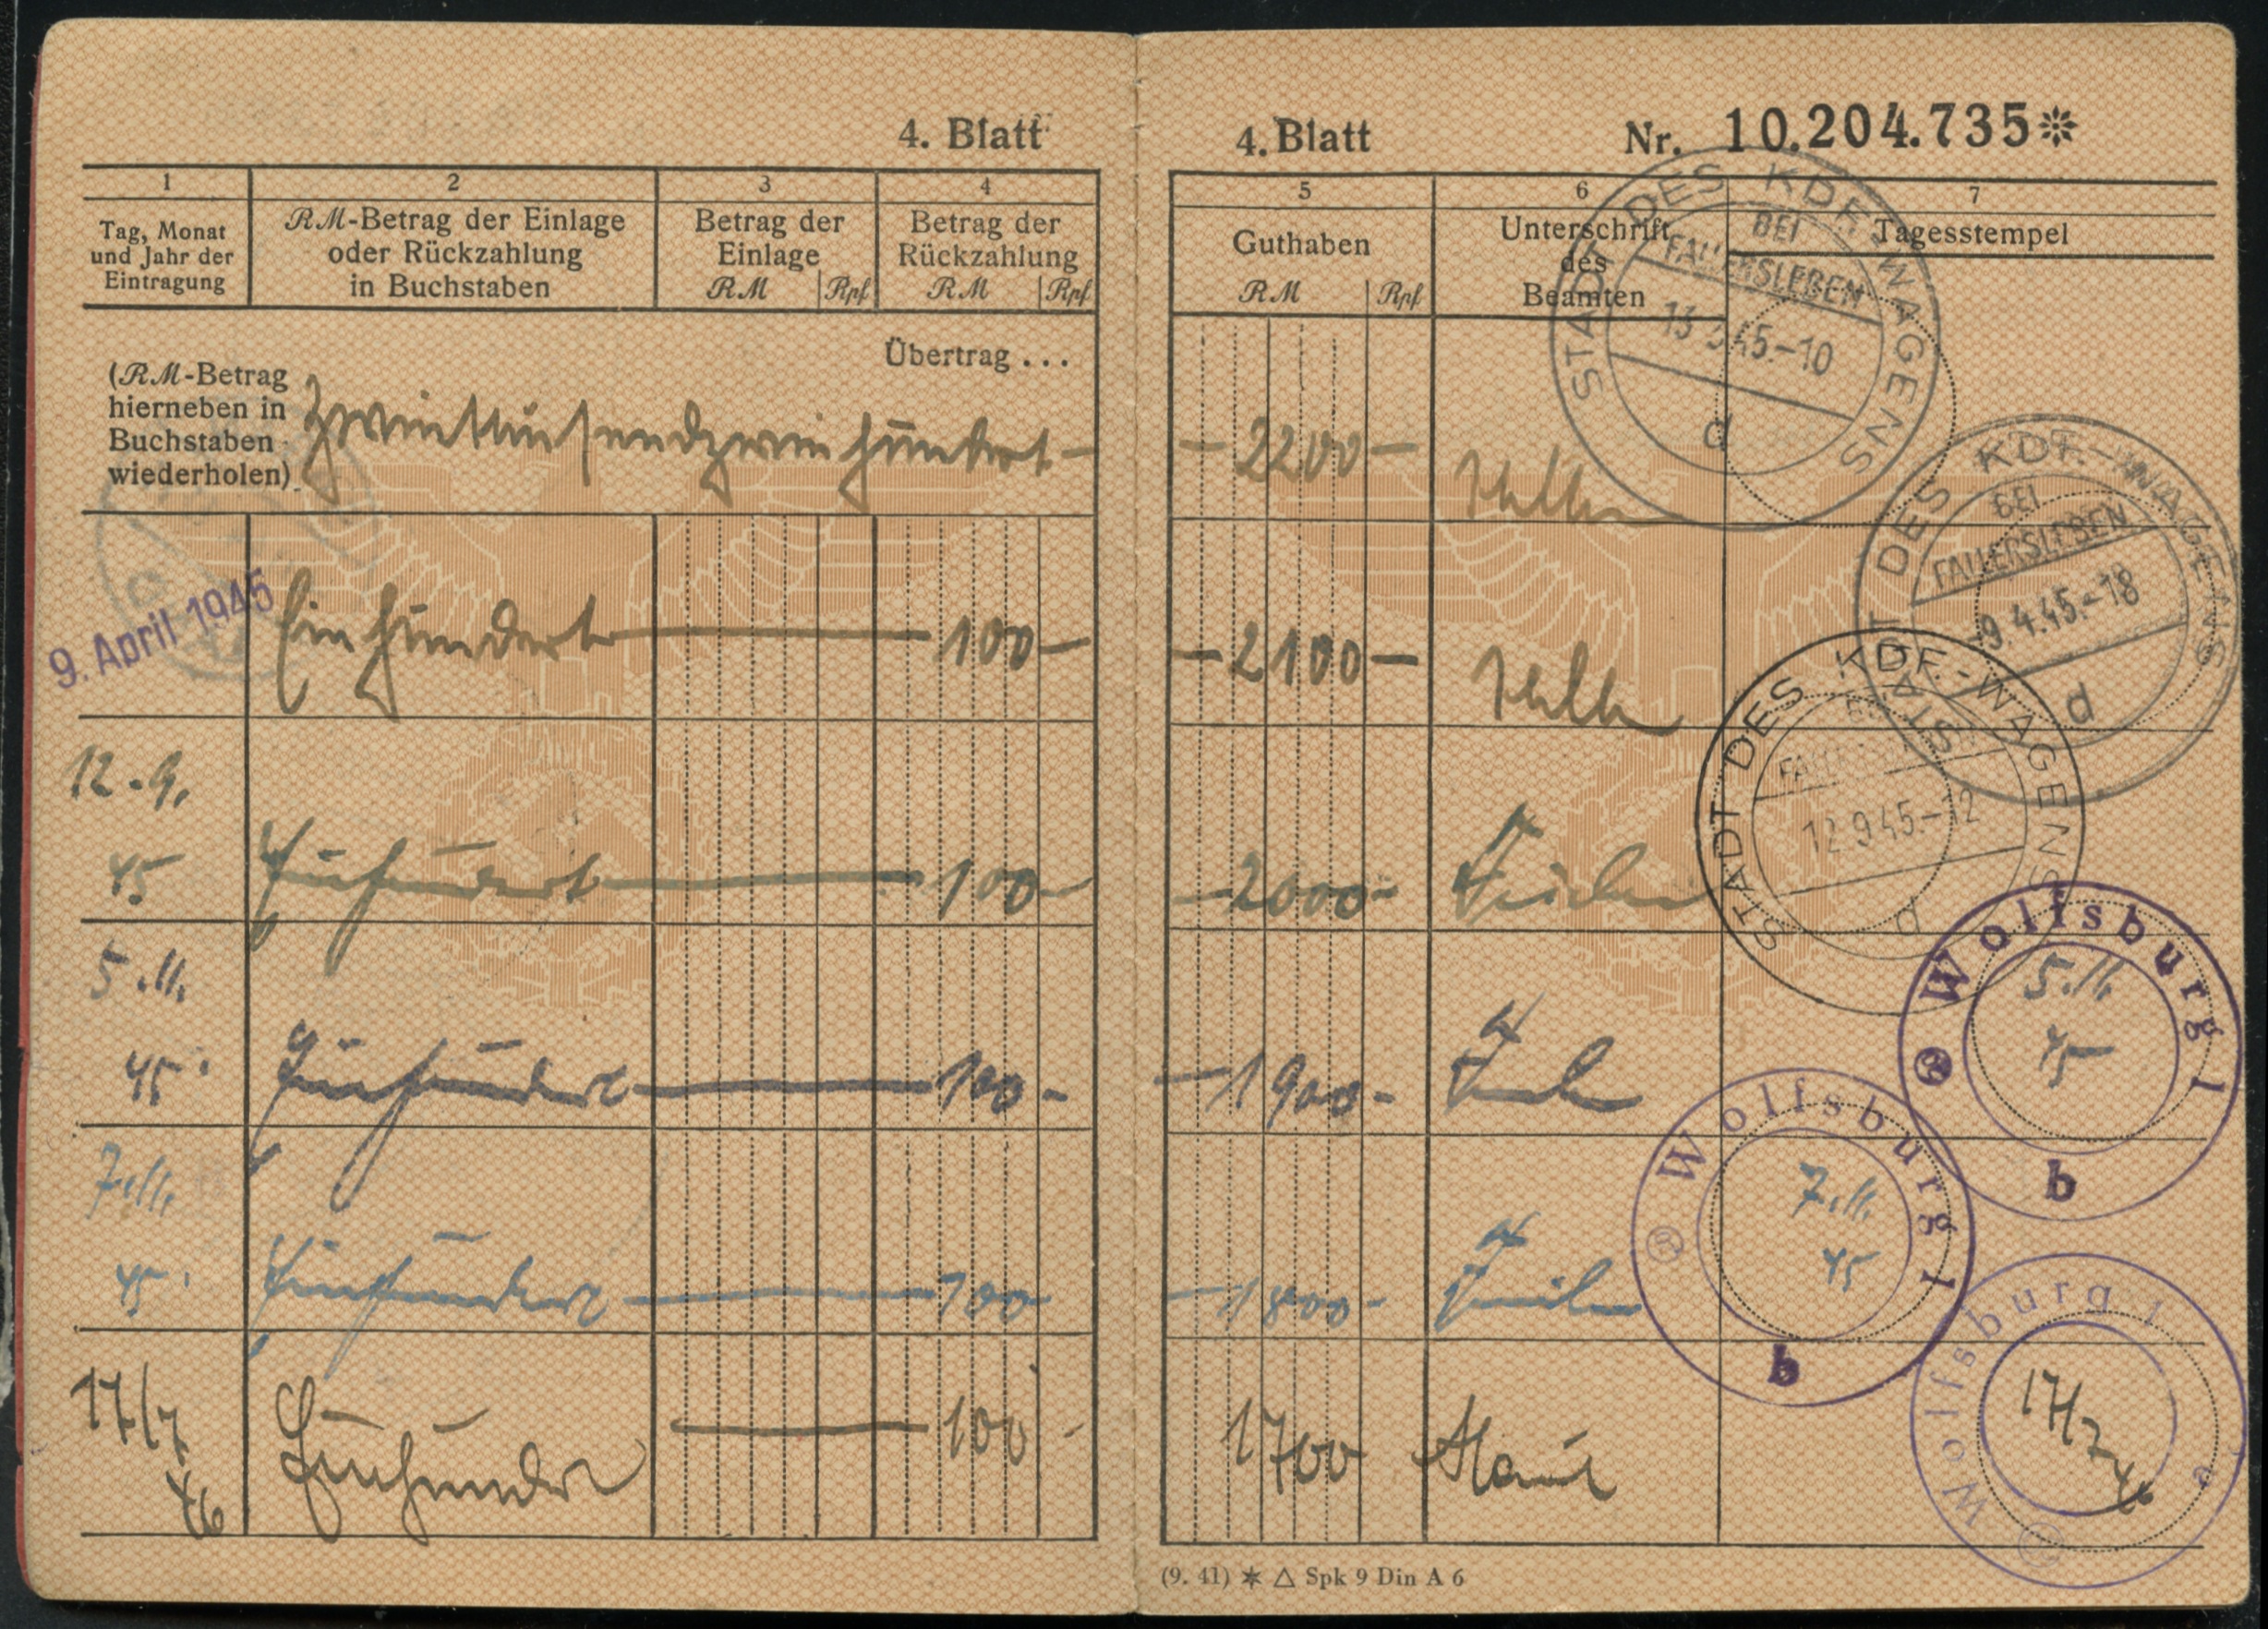 4. Blatt
1 2 3 4
Tag, Monat
und Jahr der
Eintragung
RM-Betrag der Einlage
oder Rückzahlung
in Buchstaben
Betrag der
Einlage
RM Rpf
Betrag der
Rückzahlung
RM Rpf
Übertrag ...
(RM-Betrag
hierneben in
Buchstaben
wiederholen)
Zweitausendzweihundert -
9. April 1945
Einhundert 100 -
12.9.
45
Einhundert 100 -
5.11.
45
Einhundert 100 -
7.11.
45
Einhundert 100 -
17/7
46
Einhundert 100 -
4. Blatt
Nr. 10.204.735
5 6 7
Guthaben
RM Rpf
Unterschrift
des
Beamten
Tagesstempel
- 2200 -
- 2100 -
- 2000 -
- 1900 -
- 1800 -
1700
STADT DES KDF.-WAGENS
BEI
FALLERSLEBEN
13 3.45.-10
d
STADT DES KDF.-WAGENS
BEI
FALLERSLEBEN
-9.4.45.-18
d
STADT DES KDF.-WAGENS
BEI
FALLERSLEBEN
12.9.45.-12
d
Wolfsburg 1
5.11.
45
b
Wolfsburg 1
7.11.
45
b
Wolfsburg 1
17/7
46
e
(9. 41) ✶ △ Spk 9 Din A 6